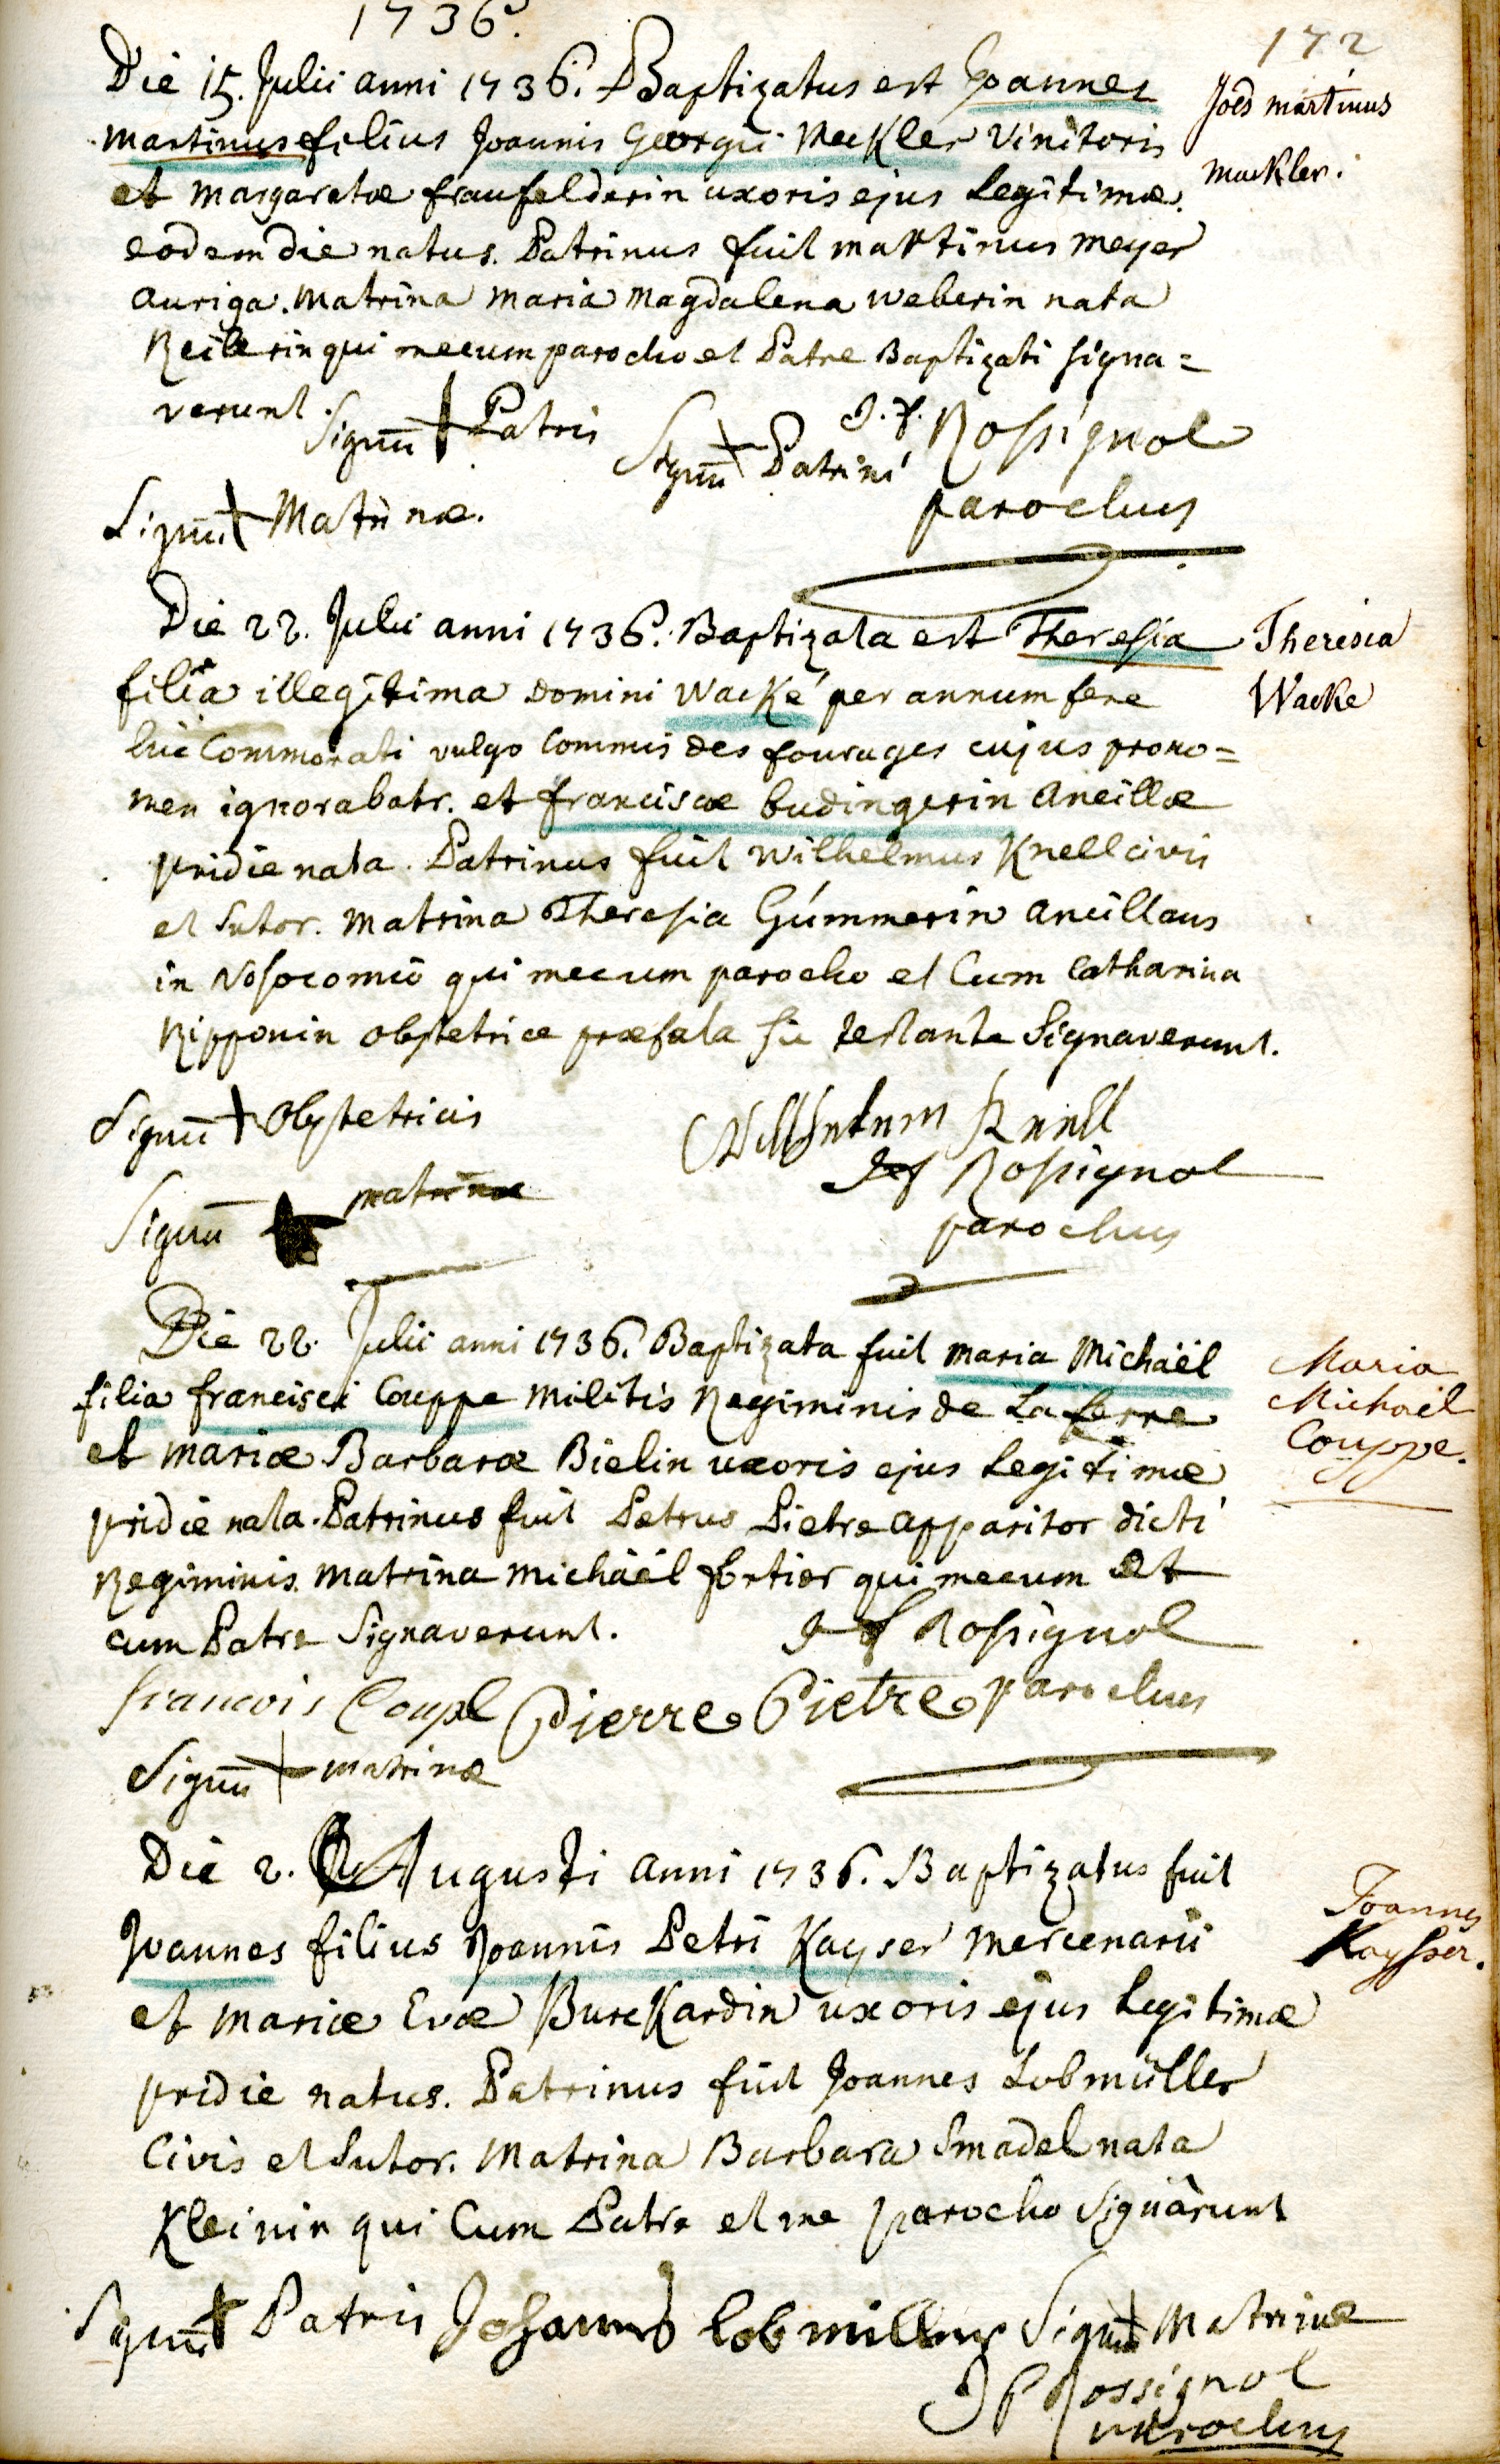 1736.
172
Die 15. Julii anni 1736. Baptizatus est Joannes
Joēs martinus
martinus filius Joannis Georgii Meckler Vinitoris
muckler.
et margaretæ fraufelderin uxoris ejus Legitimæ.
eodem die natus. Patrinus fuit martinus meyer
auriga. matrina maria magdalena weberin nata
Reilerin qui mecum parocho et Patre Baptizati signa=
verunt. Signū + Patris Signū + Patrini J. f. Rossignol
Signū + Matrinæ. parochus
Die 22. Julii anni 1736. Baptizata est Theresia
Theresia
filia illegitima Domini Wacké per annum fere
Wacke
hîc Commorati vulgo Commis des fourages cujus prono=
men ignorabatr. et franciscæ budingerin Ancillæ
pridie nata. Patrinus fuit Wilhelmus Knell civis
et Sutor. Matrina Theresia Gümmerin ancillans
in Nosocomio qui mecum parocho et Cum Catharina
Ripponin obstetrice præfata sic testante Signaverunt.
Signū + Obstetricis Willhelum Knell
Signū + matrinæ J f Rossignol
parochus
Die 22. Julii anni 1736. Baptizata fuit maria Michäel
Maria
filia francisci Couppe militis Regiminis de La ferre
Michaël
et mariæ Barbaræ Bielin uxoris ejus Legitimæ
Couppe.
pridie nata. Patrinus fuit Petrus Pietre apparitor dicti
Regiminis. matrina michäel fortier qui mecum et
cum Patre Signaverunt. J f Rossignol
francois Coupe Pierre Pietre parochus
Signū + matrinæ
Die 2. Augusti anni 1736. Baptizatus fuit
Joannes filius Joannis Petri Kayser mercenarii
Joannes
Kaysser.
et mariæ Evæ Burckardin uxoris ejus Legitimæ
pridie natus. Patrinus fuit Joannes Lobmüller
Civis et Sutor. Matrina Barbara Smadel nata
Kleinin qui Cum Patre et me parocho Signârunt
Signū + Patris Johannes lobmiller Signū + Matrinæ
J f Rossignol
parochus